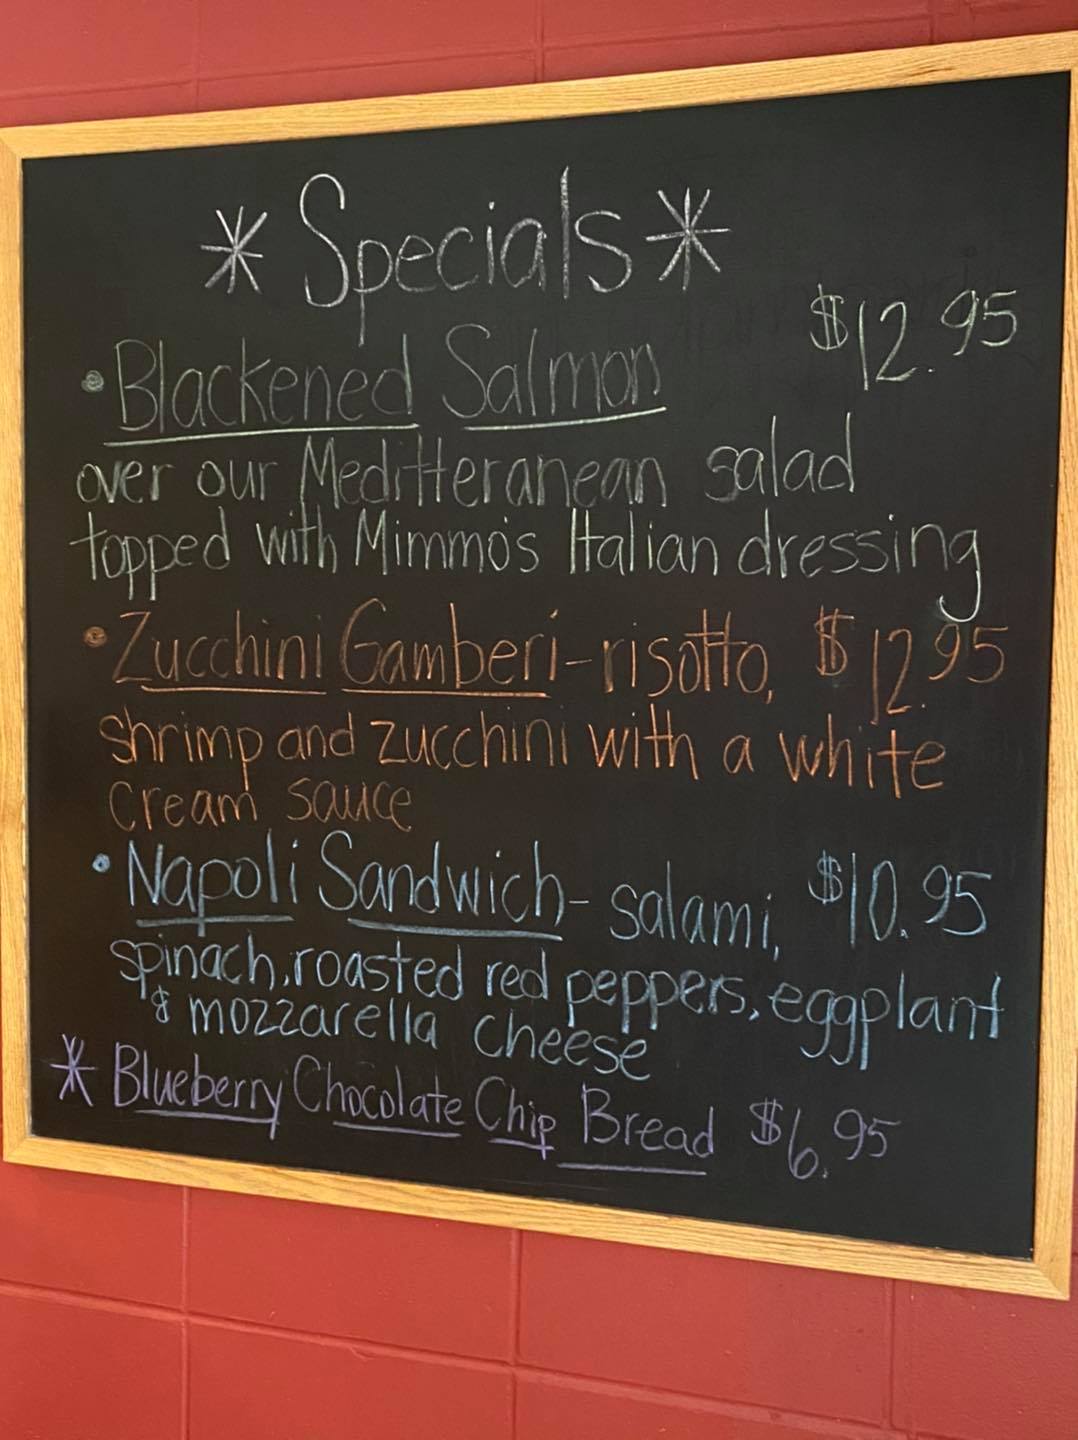 * Specials *
$12.95
• Blackened Salmon
over our Meditteranean salad
topped with Mimmo's Italian dressing
• Zucchini Gamberi - risotto, $12.95
shrimp and zucchini with a white
cream sauce
• Napoli Sandwich - salami, $10.95
spinach, roasted red peppers, eggplant
& mozzarella cheese
* Blueberry Chocolate Chip Bread $6.95